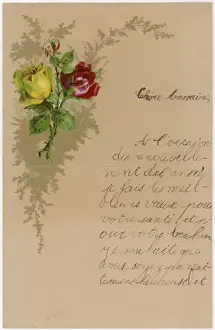 Chère Marraine,
A l'occasion
du nouvel
an
je fais les meil-
leurs vœux pour
votre santé et p
our votre bonheur
je souhaite que
vous soyez parfait-
tement heureuse et